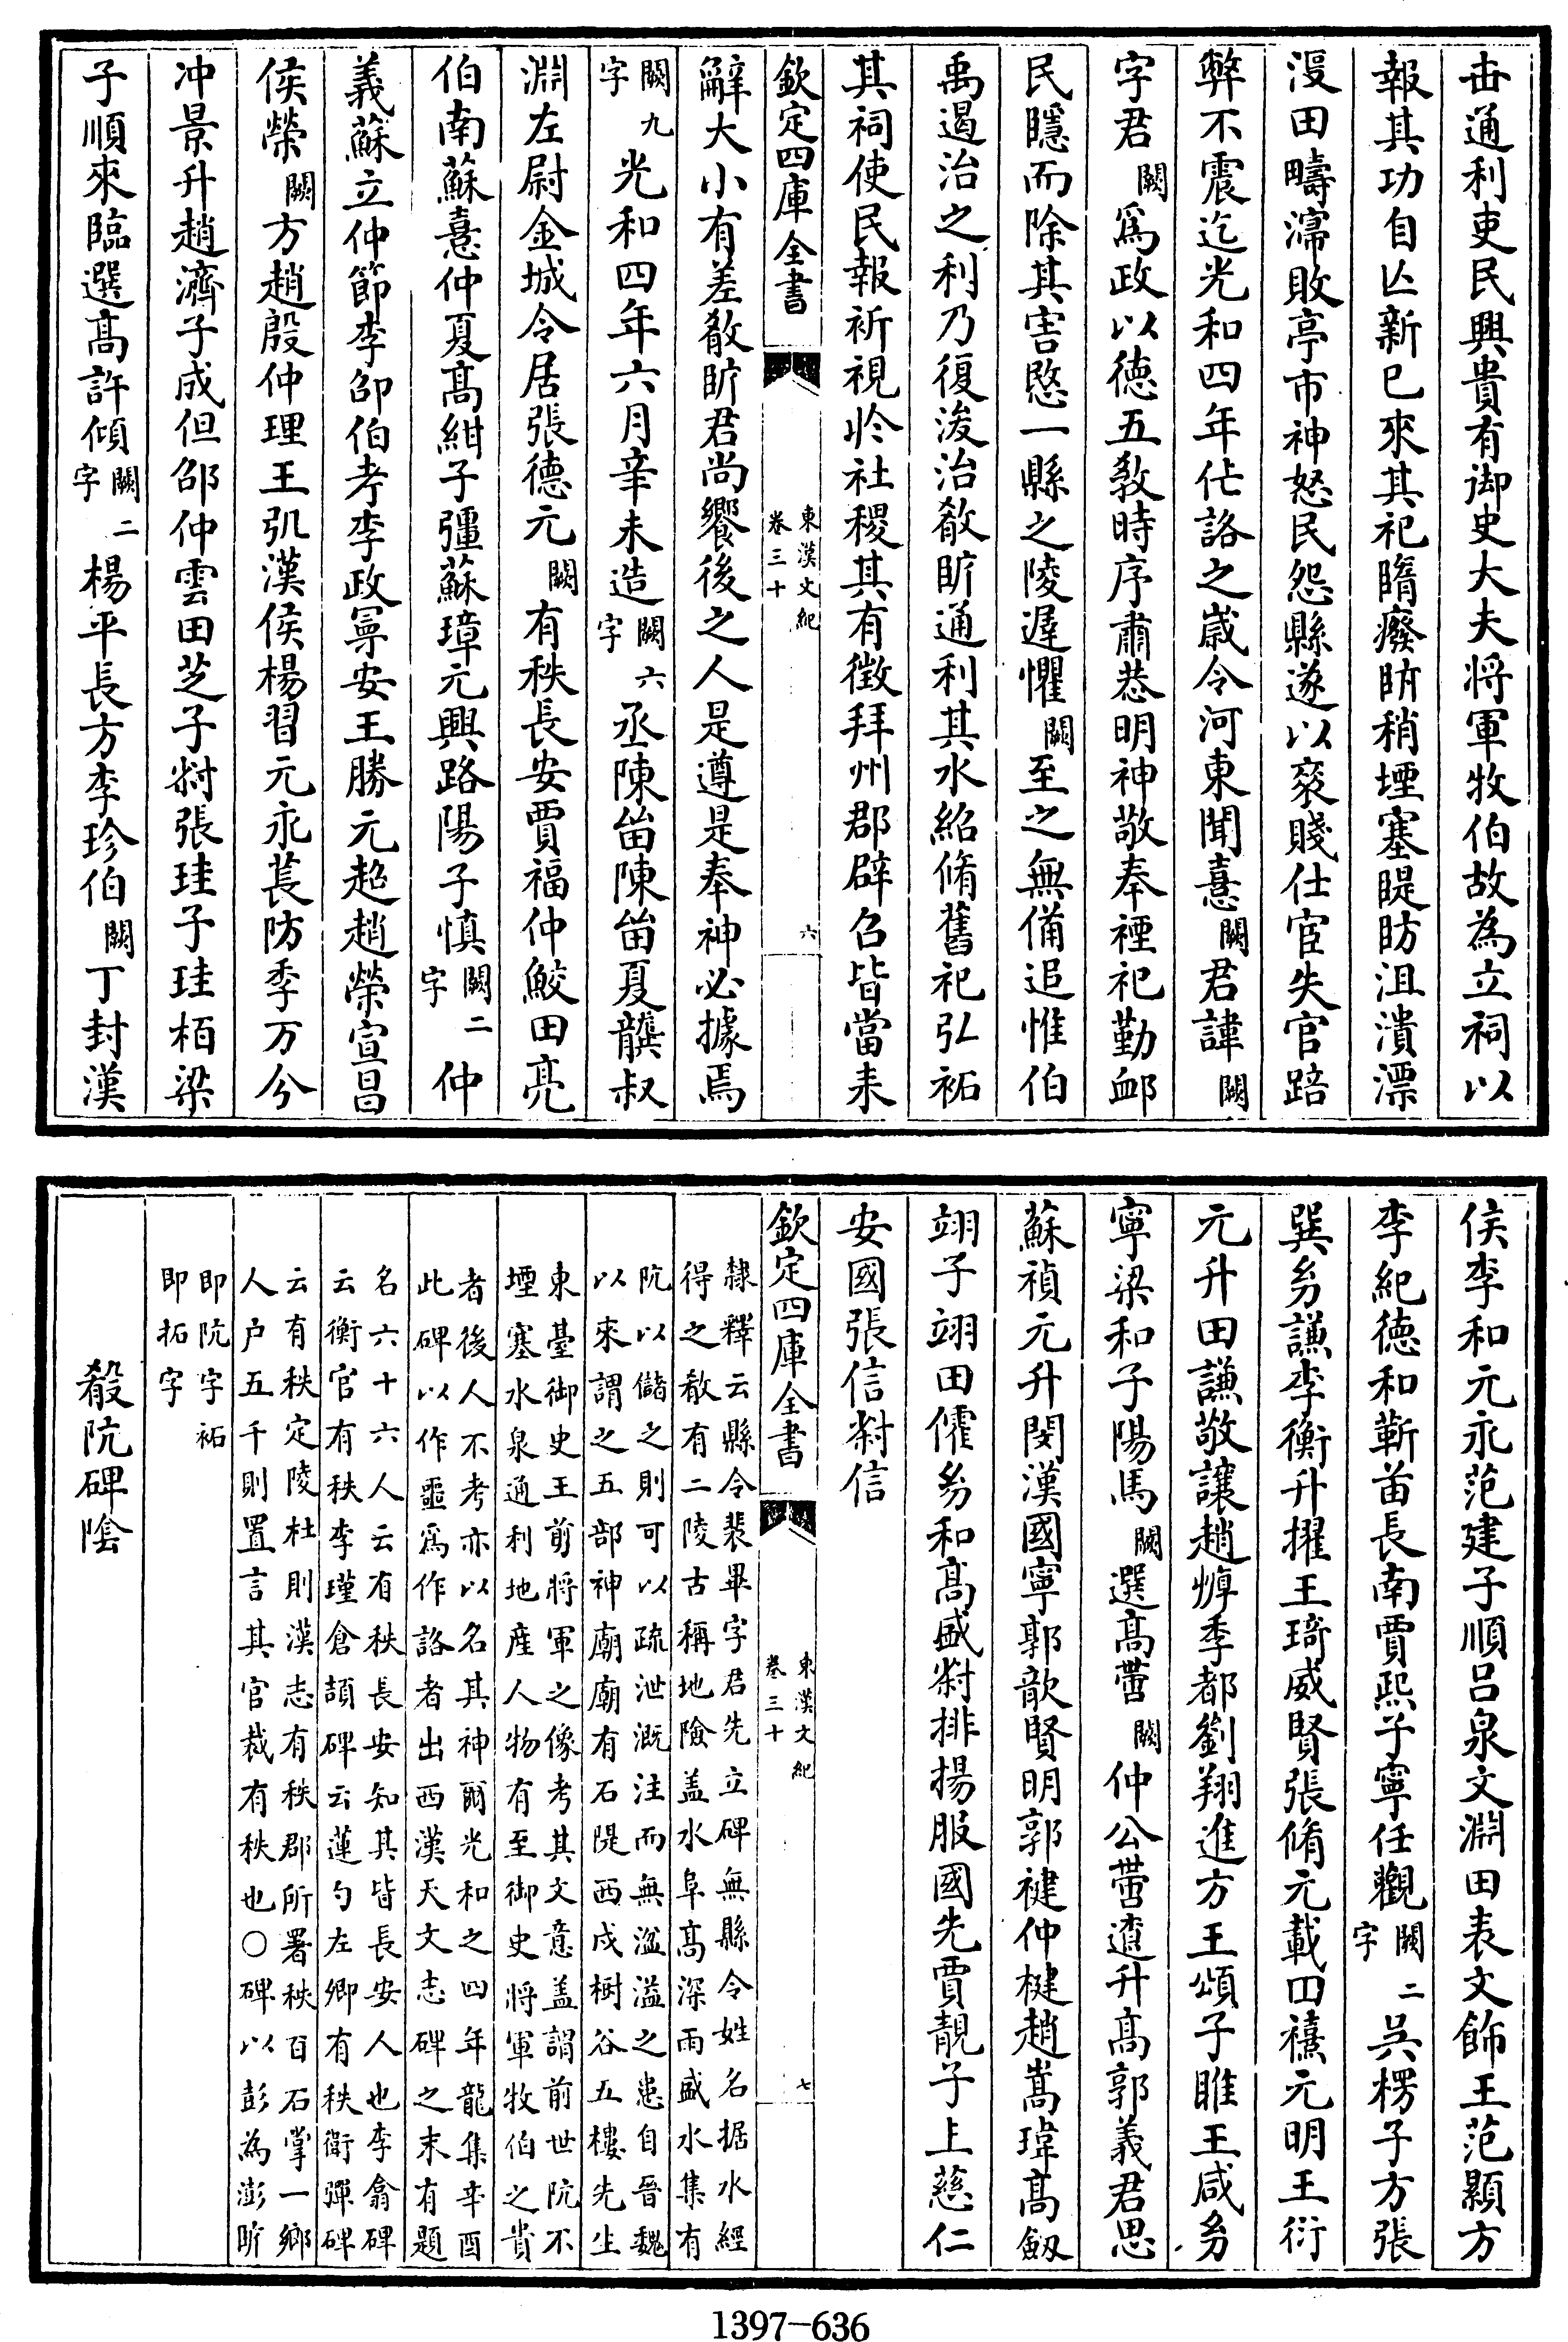 世通利吏民興貴有御史大夫將軍牧伯故為立祠以
報其功自亾新已來其祀隋癈䧃稍堙塞隄防沮潰漂
沒田疇𣻌敗亭市神怒民怨縣遂以衰賤仕宦失官踣
弊不震迄光和四年㐲詻之嵗令河東聞憙闕君諱闕
字君闕爲政以德五教時序肅恭明神敬奉禋祀勤䘏
民隱而除其害愍一縣之陵遲懼闕至之無備追惟伯
禹遏治之利乃復浚治㪣䧃通利其水紹脩舊祀弘祏
其祠使民報祈視㣼社稷其有徴拜州郡辟召皆當未
欽定四庫全書
東漢文紀
卷三十
六
辭大小有差㪣䧃君尚饗後之人是遵是奉神必據焉
闕九字光和四年六月辛未造闕六字丞陳𤰺陳𤰺夏龔叔
淵左尉金城令居張德元闕有秩長安賈福仲鮫田亮
伯南蘇憙仲夏髙紺子彊蘇璋元興路陽子慎闕二字仲
義蘇立仲節李邵伯考李政寧安王勝元超趙榮宣昌
侯榮闕方趙殷仲理王𢎺漢侯楊習元永萇防季万兮
冲景升趙濟子成但邵仲雲田芝子𡬶張珪子珪栢梁
子順來臨選髙許傾闕二字楊平長方李珍伯闕丁封漢
侯李和元永范建子順吕泉文淵田表文飾王范顯方
李紀德和蘄苗長南賈熙子寧任觀闕二字吳楞子方張
巽㓜謙李衡升擢王琦威賢張脩元載田禧元明王衍
元升田謙敬讓趙惇季都劉翔進方王頌子睢王咸㓜
寧梁和子陽馬闕選髙䔈闕仲公䔈遒升髙郭義君思
蘇禎元升閔漢國寧郭歆賢明郭楗仲楗趙嵩瑋髙劔
翊子翊田㒕㓜和髙盛𡬶排揚服國先賈靚子上慈仁
安國張信𡬶信
欽定四庫全書
東漢文紀
卷三十
七
隸釋云縣令裴畢字君先立碑無縣令姓名据水經
得之㪣有二陵古稱地險盖水阜髙深雨盛水集有
阬以儲之則可以疏泄溉注而無湓溢之患自晉魏
以來謂之五部神廟廟有石隄西戍樹谷五樓先生
東臺御史王前將軍之像考其文意盖謂前世阬不
堙塞水泉通利地産人物有至御史將軍牧伯之貴
者後人不考亦以名其神爾光和之四年龍集辛酉
此碑以作噩爲作詻者出西漢天文志碑之末有題
名六十六人云有秩長安知其皆長安人也李翕碑
云衡官有秩李瑾倉頡碑云蓮勺左鄉有秩衙彈碑
云有秩定陵杜則漢志有秩郡所署秩百石掌一鄉
人户五千則置言其官裁有秩也○碑以彭為澎䧃
即阬字祏
即拓字
㪣阬碑隂
1397-636